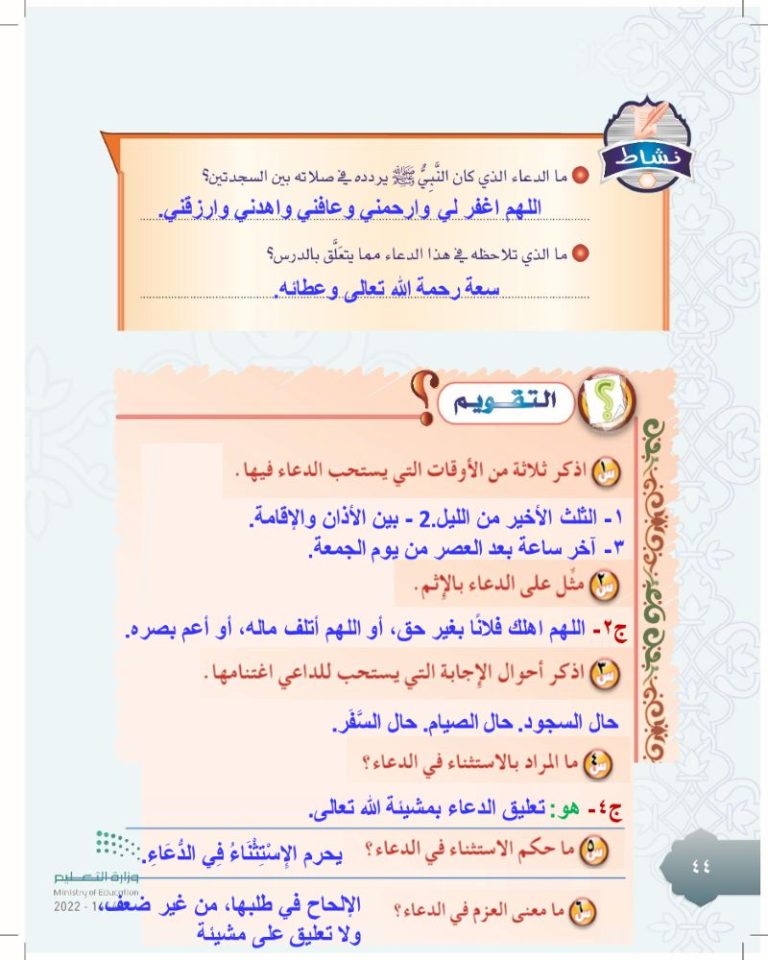 نشاط
ما الدعاء الذي كان النَّبِيُّ ﷺ يردده في صلاته بين السجدتين؟
اللهم اغفر لي وارحمني وعافني واهدني وارزقني.
ما الذي تلاحظه في هذا الدعاء مما يتعلَّق بالدرس؟
سعة رحمة الله تعالى وعطائه.
التقويم
س١ اذكر ثلاثة من الأوقات التي يستحب الدعاء فيها.
١- الثلث الأخير من الليل.2 - بين الأذان والإقامة.
٣- آخر ساعة بعد العصر من يوم الجمعة.
س٢ مثِّل على الدعاء بالإثم.
ج٢- اللهم اهلك فلانًا بغير حق، أو اللهم أتلف ماله، أو أعم بصره.
س٣ اذكر أحوال الإجابة التي يستحب للداعي اغتنامها.
حال السجود. حال الصيام. حال السَّفَر.
س٤ ما المراد بالاستثناء في الدعاء؟
ج٤- هو: تعليق الدعاء بمشيئة الله تعالى.
س٥ ما حكم الاستثناء في الدعاء؟ يحرم الإِسْتِثْنَاءُ فِي الدُّعَاءِ.
س٦ ما معنى العزم في الدعاء؟ الإلحاح في طلبها، من غير ضعف،
ولا تعليق على مشيئة
٤٤
وزارة التعليم
Ministry of Education
2022 - 14